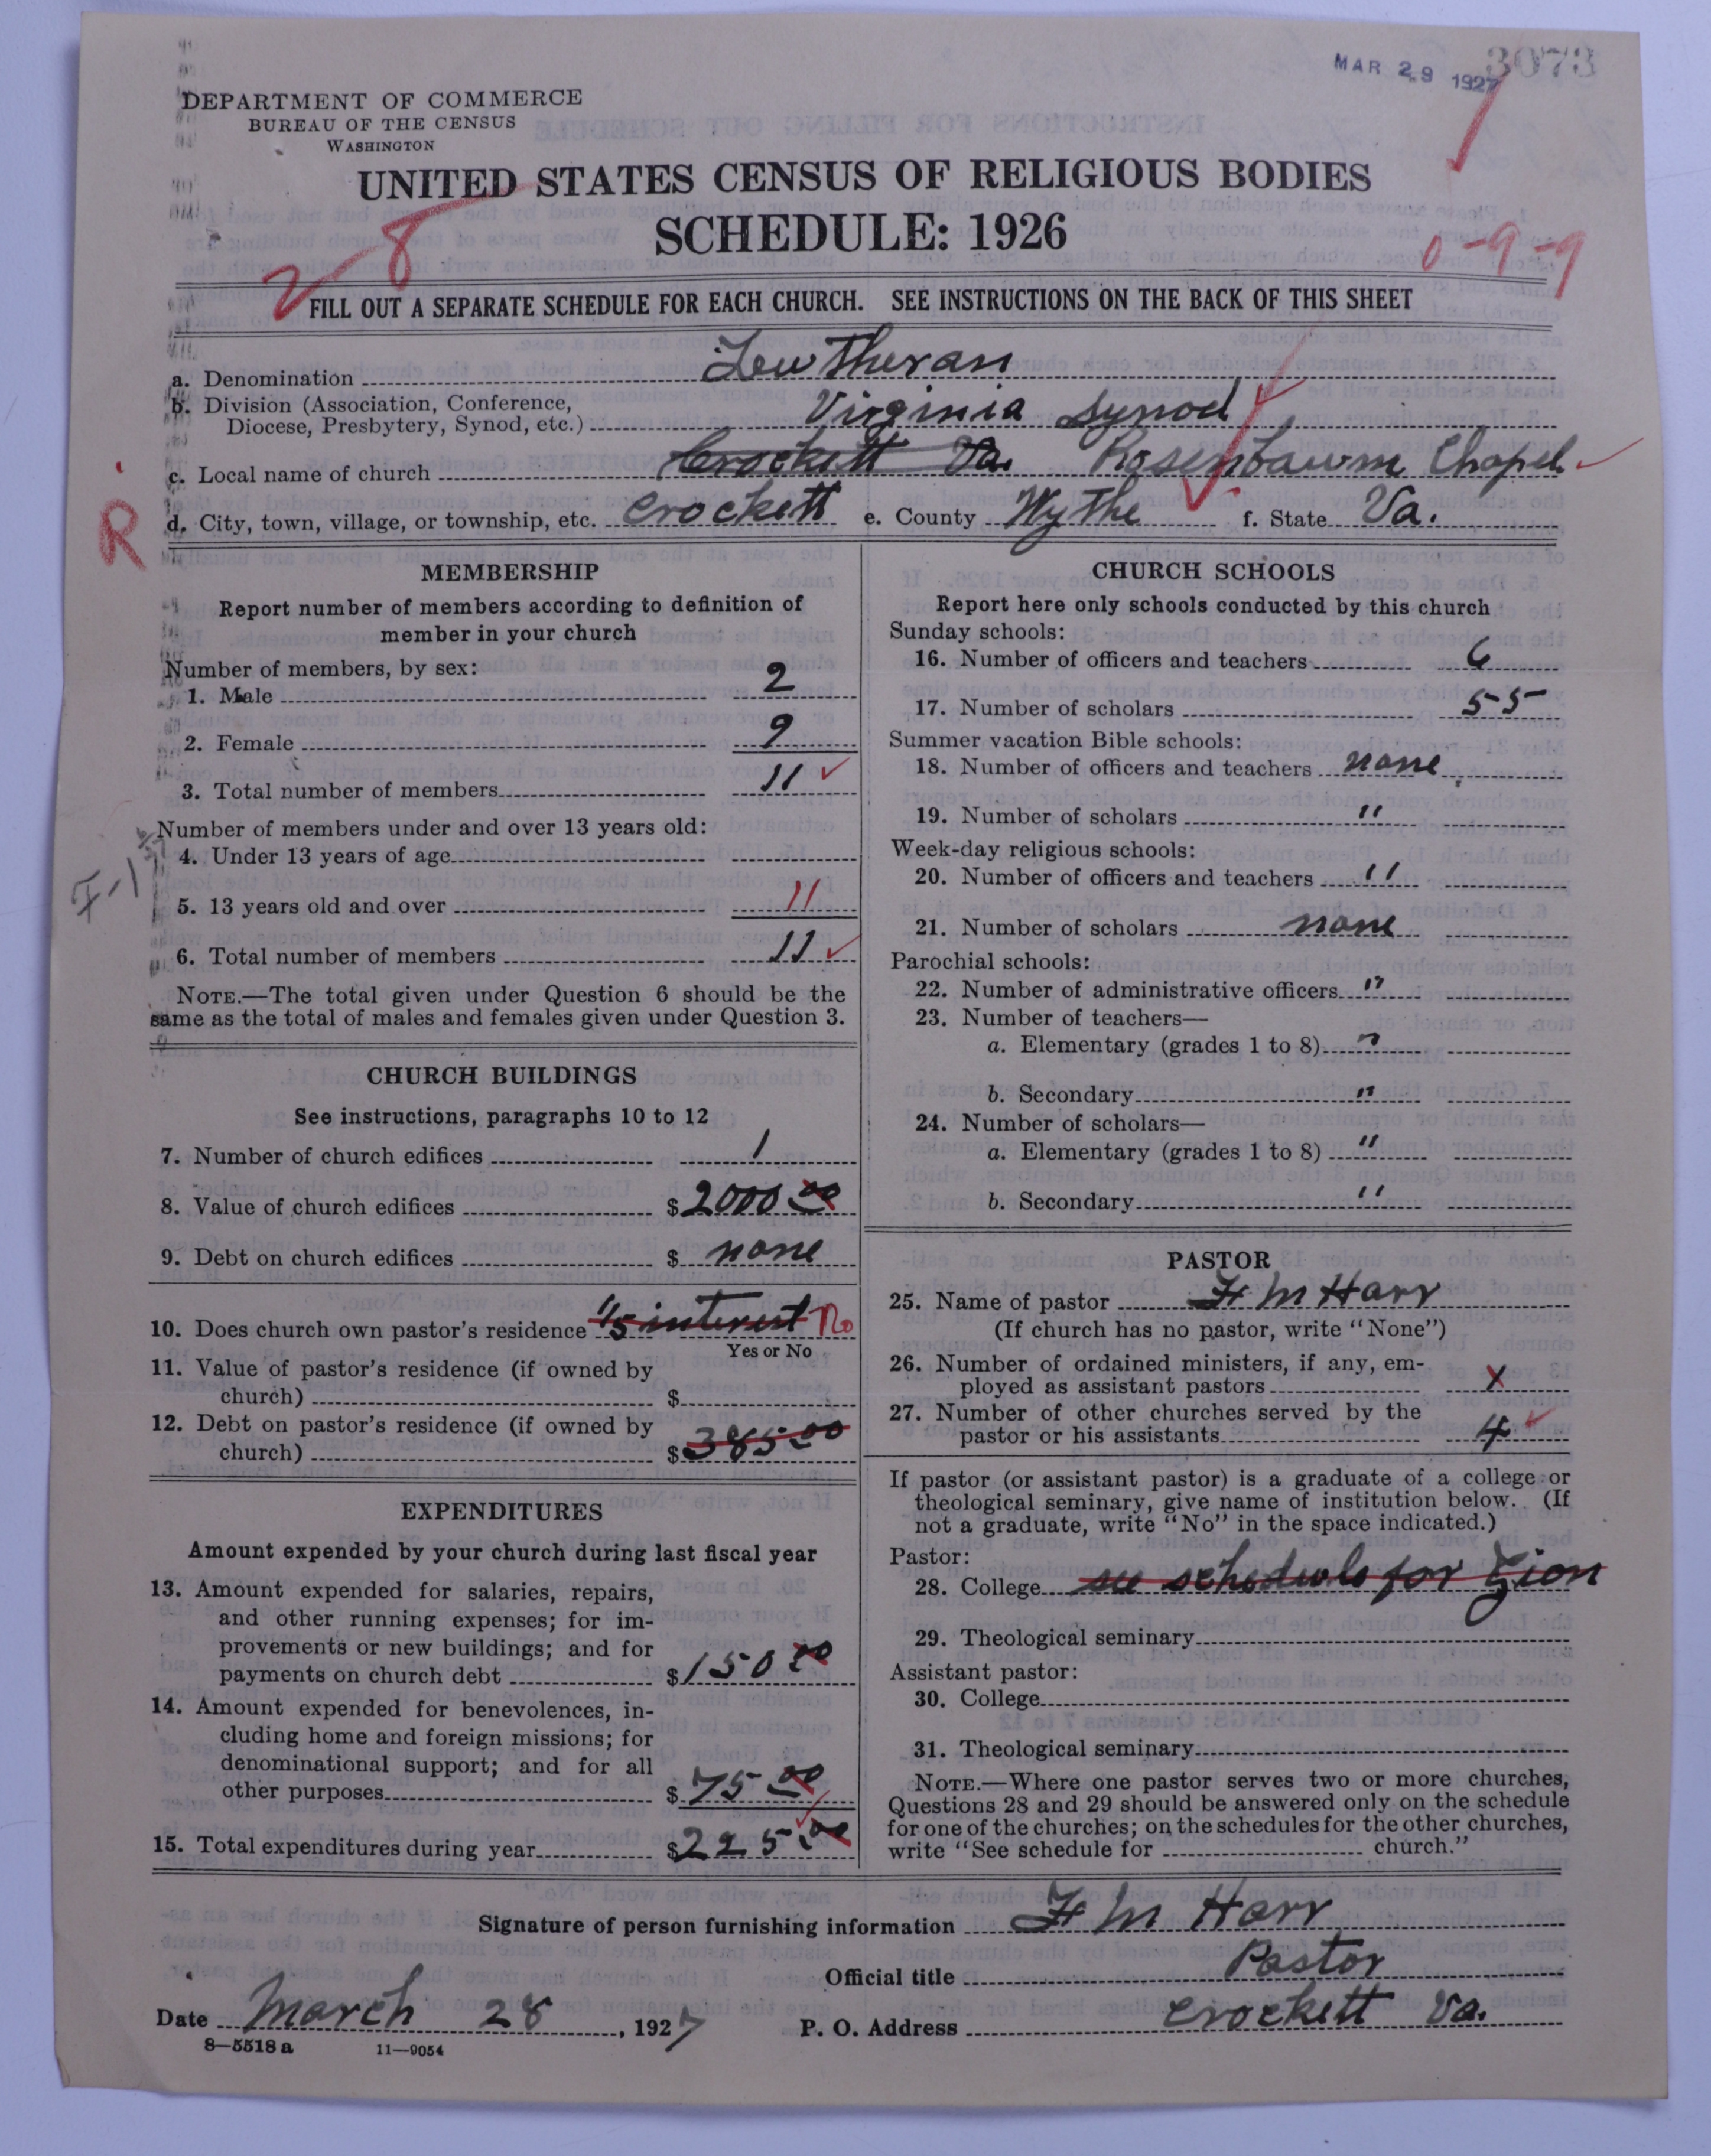 MAR 29 1927 3073
DEPARTMENT OF COMMERCE
BUREAU OF THE CENSUS
WASHINGTON
UNITED STATES CENSUS OF RELIGIOUS BODIES
SCHEDULE: 1926
28
0-9-9
FILL OUT A SEPARATE SCHEDULE FOR EACH CHURCH. SEE INSTRUCTIONS ON THE BACK OF THIS SHEET
a. Denomination Lewtheran
b. Division (Association, Conference,
Diocese, Presbytery, Synod, etc.) Virginia Synod
c. Local name of church Crockett Va. Rosenbaum Chapel
R
d. City, town, village, or township, etc. Crockett e. County Wythe f. State Va.
MEMBERSHIP
Report number of members according to definition of
member in your church
Number of members, by sex:
1. Male 2
2. Female 9
3. Total number of members 11
Number of members under and over 13 years old:
4. Under 13 years of age
F-1
5. 13 years old and over 11
6. Total number of members 11
NOTE.—The total given under Question 6 should be the
same as the total of males and females given under Question 3.
CHURCH BUILDINGS
See instructions, paragraphs 10 to 12
7. Number of church edifices 1
8. Value of church edifices $2000 00
9. Debt on church edifices $ none
10. Does church own pastor's residence 1/5 interest No
Yes or No
11. Value of pastor's residence (if owned by
church) $
12. Debt on pastor's residence (if owned by
church) $385 00
EXPENDITURES
Amount expended by your church during last fiscal year
13. Amount expended for salaries, repairs,
and other running expenses; for im-
provements or new buildings; and for
payments on church debt $150 00
14. Amount expended for benevolences, in-
cluding home and foreign missions; for
denominational support; and for all
other purposes $75 00
15. Total expenditures during year $225 00
CHURCH SCHOOLS
Report here only schools conducted by this church
Sunday schools:
16. Number of officers and teachers 6
17. Number of scholars 55
Summer vacation Bible schools:
18. Number of officers and teachers none
19. Number of scholars "
Week-day religious schools:
20. Number of officers and teachers "
21. Number of scholars none
Parochial schools:
22. Number of administrative officers "
23. Number of teachers—
a. Elementary (grades 1 to 8) "
b. Secondary "
24. Number of scholars—
a. Elementary (grades 1 to 8) "
b. Secondary "
PASTOR
25. Name of pastor F M Harr
(If church has no pastor, write "None")
26. Number of ordained ministers, if any, em-
ployed as assistant pastors x
27. Number of other churches served by the
pastor or his assistants 4
If pastor (or assistant pastor) is a graduate of a college or
theological seminary, give name of institution below. (If
not a graduate, write "No" in the space indicated.)
Pastor:
28. College see schedule for Zion
29. Theological seminary
Assistant pastor:
30. College
31. Theological seminary
NOTE.—Where one pastor serves two or more churches,
Questions 28 and 29 should be answered only on the schedule
for one of the churches; on the schedules for the other churches,
write "See schedule for church."
Signature of person furnishing information F M Harr
Official title Pastor
Date March 28, 1927 P. O. Address Crockett Va.
8—5518 a 11—9054